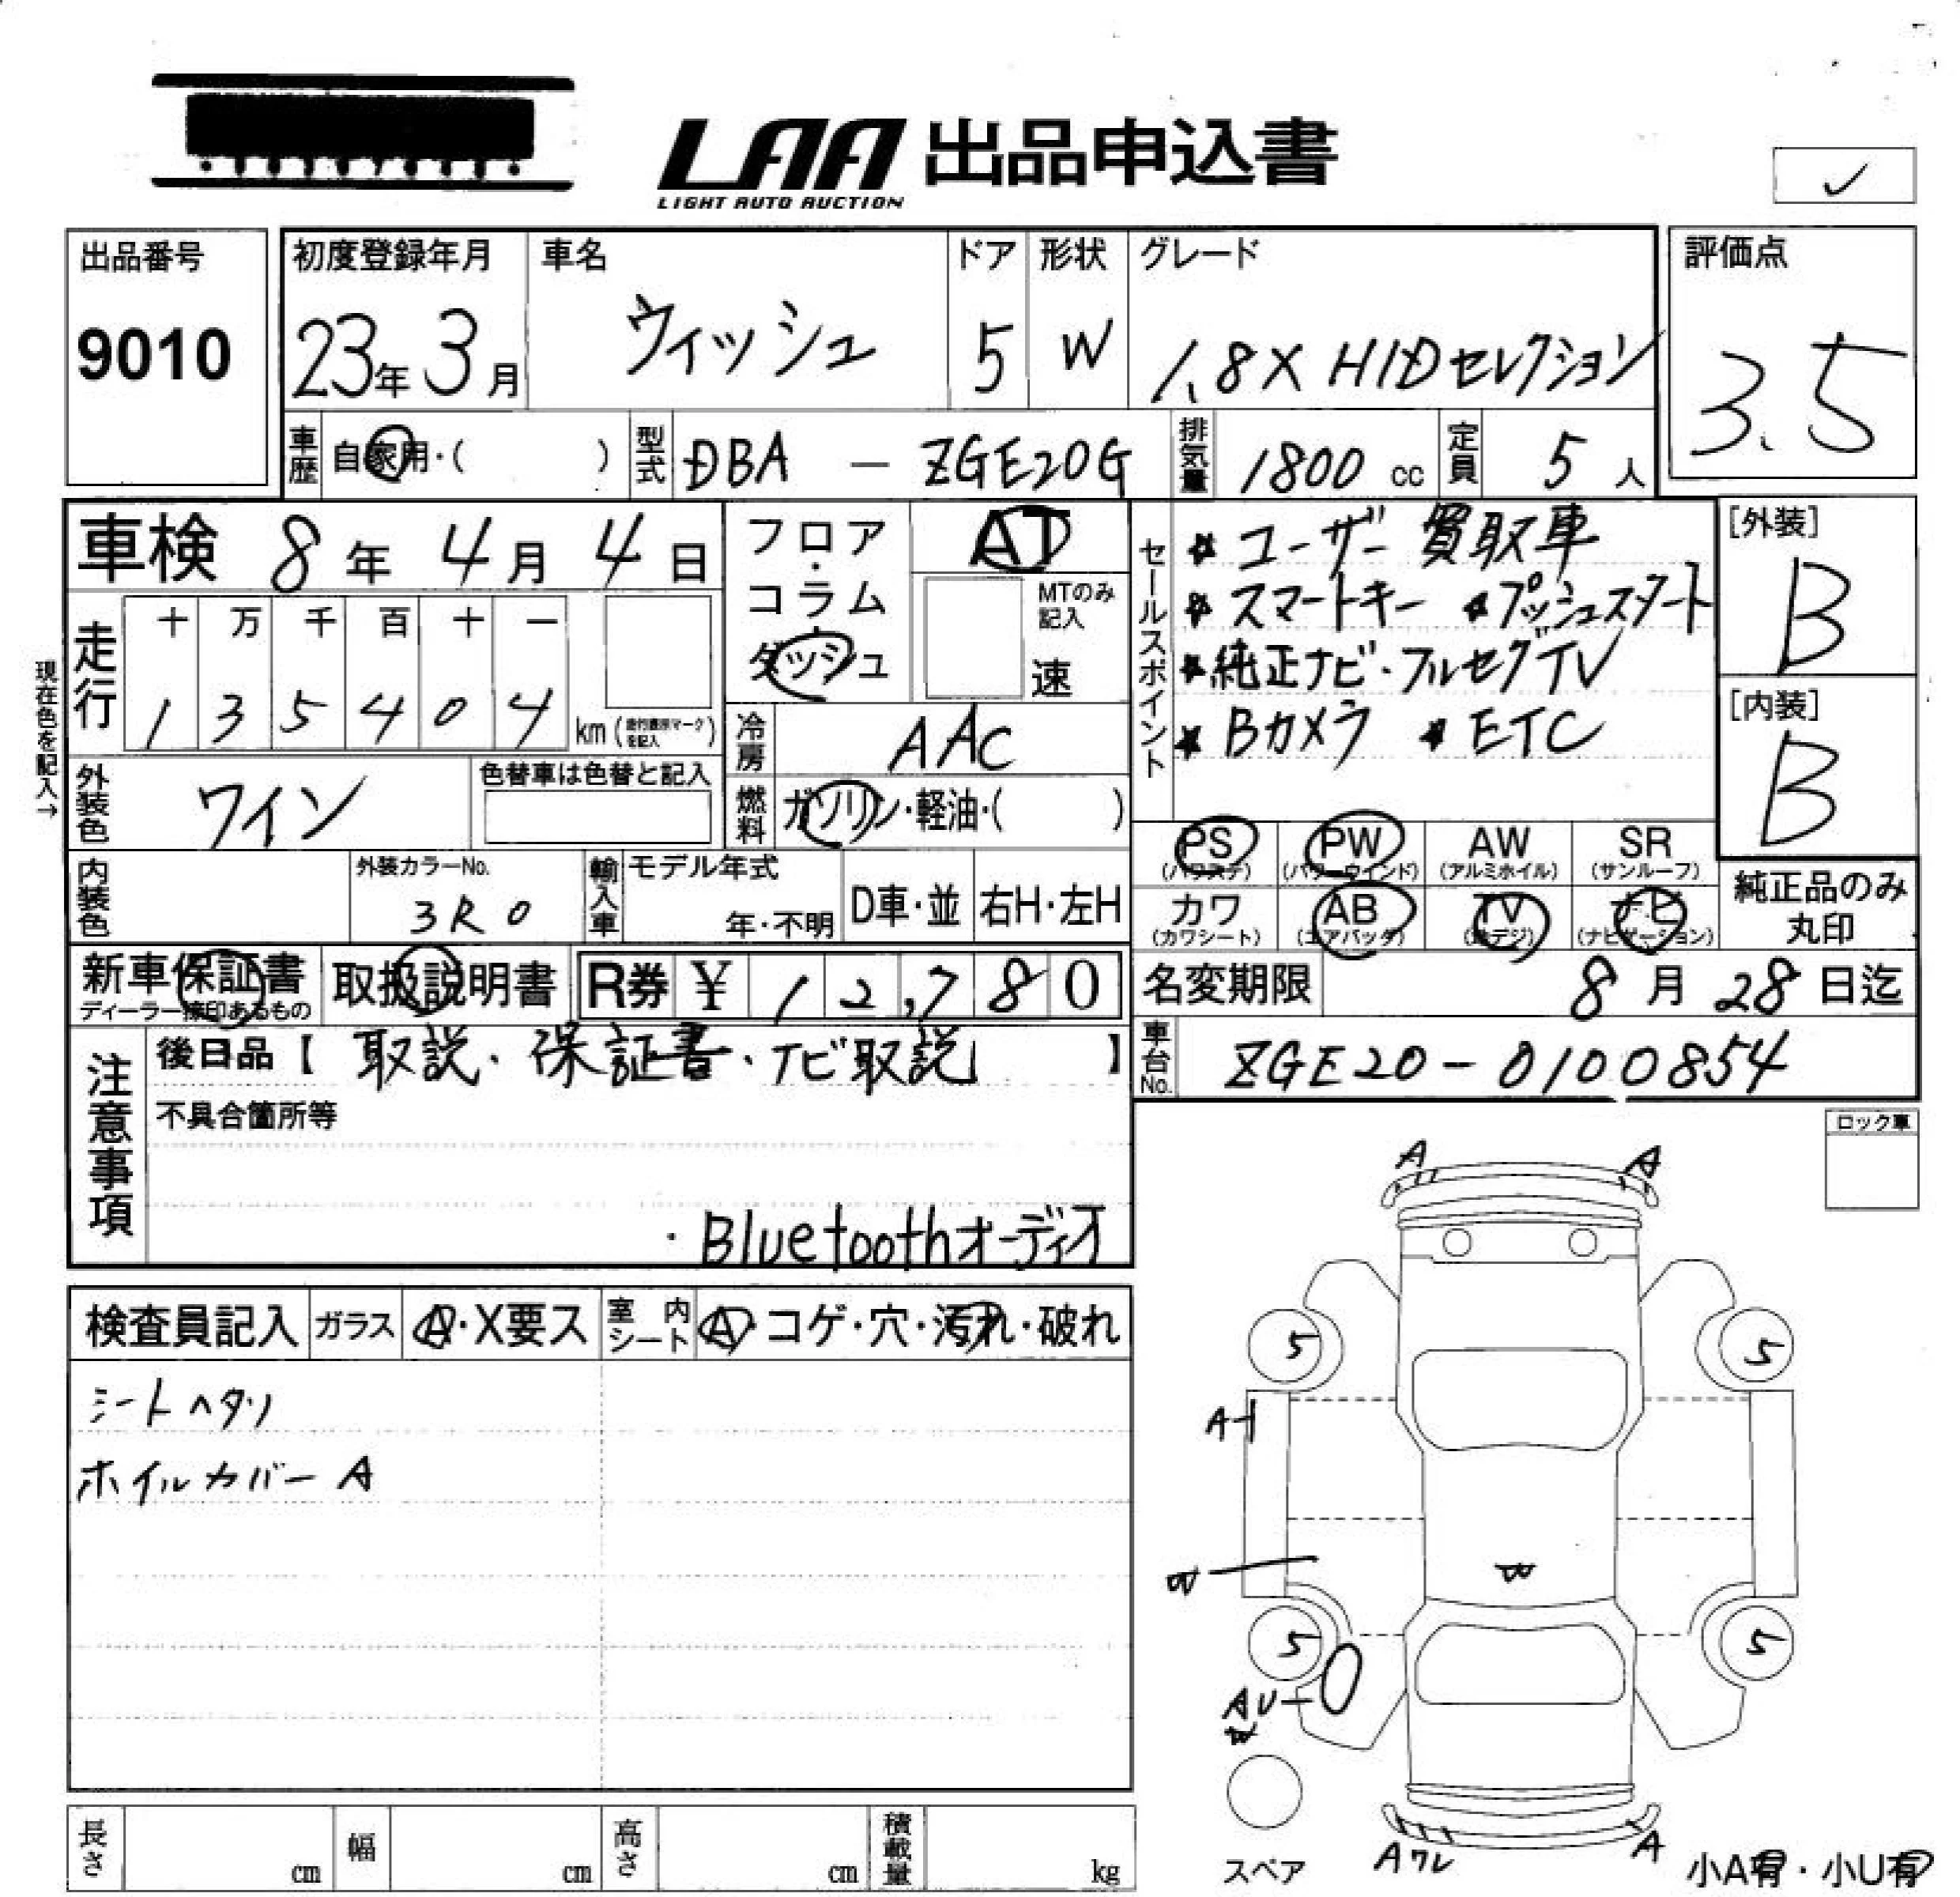 LAA 出品申込書
LIGHT AUTO AUCTION
✓
出品番号
9010
初度登録年月
23年 3月
車名
ウィッシュ
ドア
5
形状
W
グレード
1.8X HIDセレクション
評価点
3.5
車歴
自家用・( )
型式
DBA - ZGE20G
排気量
1800 cc
定員
5 人
車検 8 年 4 月 4 日
現在色を記入→
走行
十 万 千 百 十 一
1 3 5 4 0 4
km(走行表示マークを記入)
フロア・コラム・ダッシュ
AT
MTのみ記入
速
冷房
AAC
燃料
ガソリン・軽油・( )
セールスポイント
★ユーザー買取車
★スマートキー ★プッシュスタート
★純正ナビ・フルセグTV
★Bカメラ ★ETC
[外装]
B
[内装]
B
外装色
ワイン
色替車は色替と記入
内装色
外装カラーNo.
3R0
輸入車
モデル年式
年・不明
D車・並
右H・左H
PS
(パワステ)
PW
(パワーウインド)
AW
(アルミホイル)
SR
(サンルーフ)
カワ
(カワシート)
AB
(エアバッグ)
TV
(地デジ)
ナビ
(ナビゲーション)
純正品のみ
丸印
新車保証書
ディーラー捺印あるもの
取扱説明書
R券 ¥ 12,780
名変期限
8 月 28 日迄
車台No.
ZGE20-0100854
注意事項
後日品【 取説・保証書・ナビ取説 】
不具合箇所等
・Bluetoothオーディオ
ロック車
検査員記入
ガラス
A・X要ス
室内シート
A・コゲ・穴・汚れ・破れ
シートヘタリ
ホイルカバー A
A A
5 5
A
W
W
5 5
AU
W
Aワレ A
スペア
小A有・小U有
長さ cm
幅 cm
高さ cm
積載量 kg